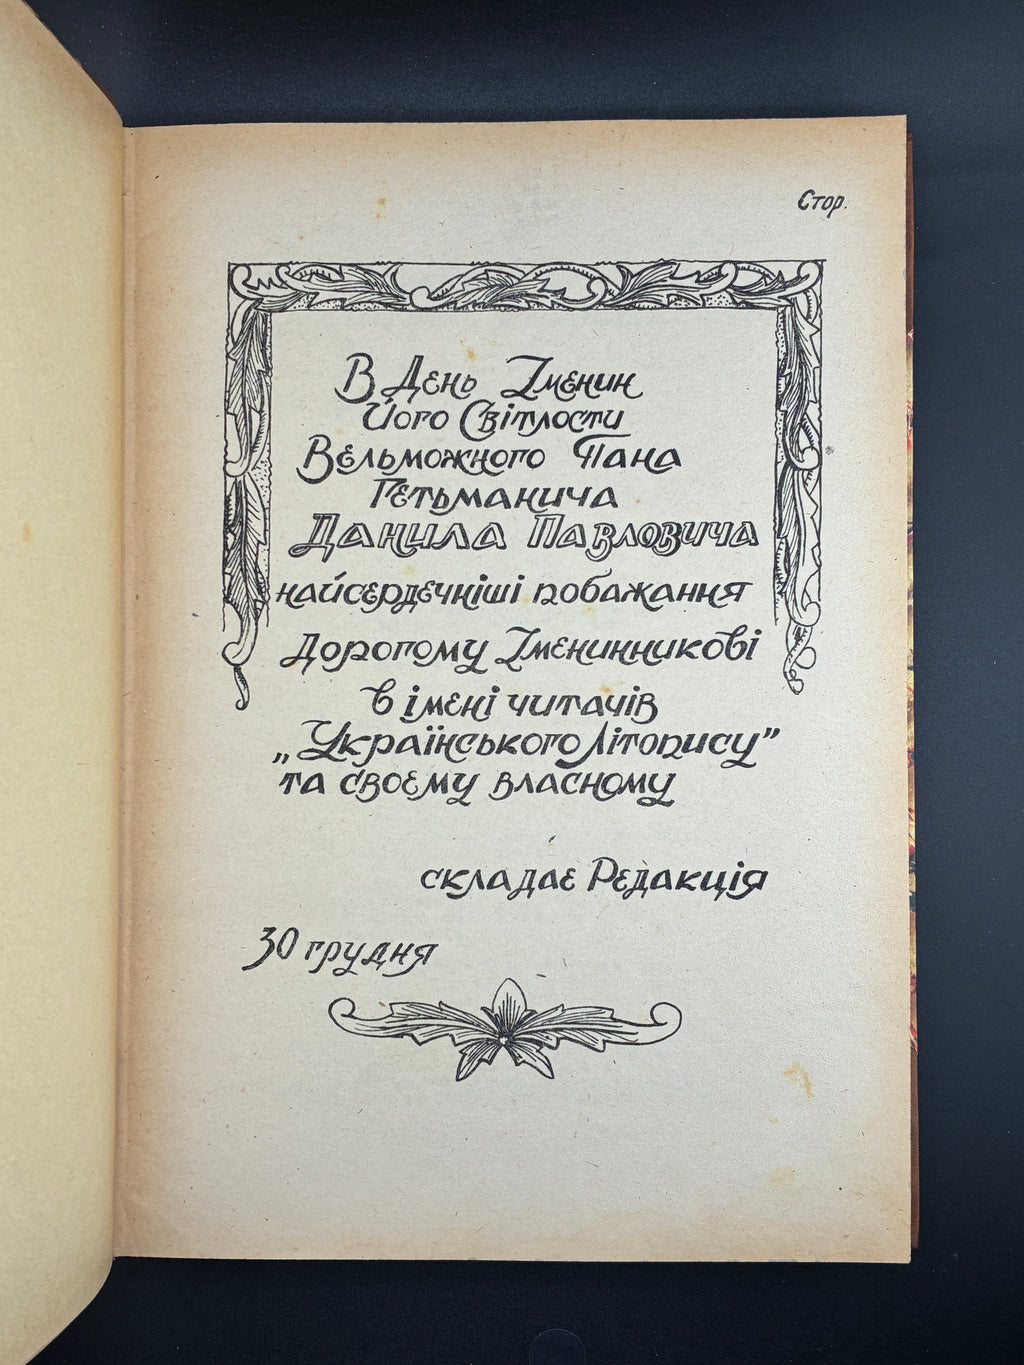 Стор.
В День Іменин
Його Світлости
Вельможного Пана
Гетьманича
Данила Павловича
найсердечніші побажання
Дорогому Іменинникові
в імені читачів
„Українського Літопису”
та своєму власному
складає Редакція
30 грудня